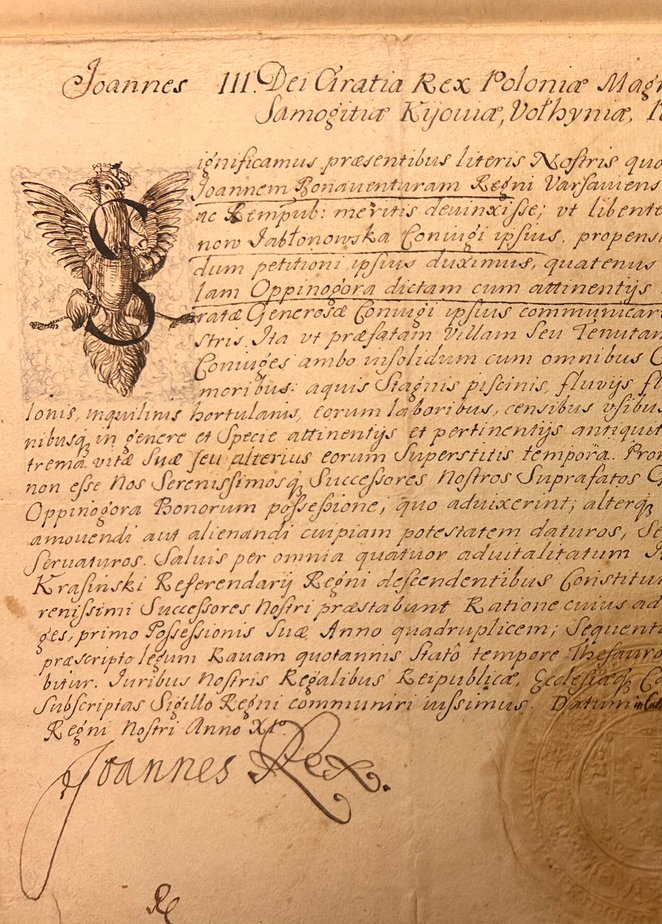 Joannes III. Dei Gratia Rex Poloniæ Mag
Samogitiæ Kijoviæ, Volhyniæ,
Significamus præsentibus literis Nostris quo
Joannem Bonaventuram Regni Varsaviens
ac Rempub: meritis devinxisse; vt libente
now Jabłonowska Coniugi ipsius, propens
dum petitioni ipsius duximus, quatenus
lam Oppinogora dictam cum attinentijs
ratæ Generosæ Coniugi ipsius communicar
stris. Ita vt præfatam Villam seu Tenutam
Coniuges ambo insolidum cum omnibus
moribus: aquis Stagnis piscinis, fluvijs fl
lonis, inquilinis hortulanis, eorum laboribus, censibus vsibus
nibusq in genere et Specie attinentijs et pertinentijs antiquit
trema vitæ Suæ seu alterius eorum Superstitis tempora. Pro
non esse Nos Serenissimosq Successores Nostros Suprafatos
Oppinogora Bonorum possessione, quo advixerint; alterq
amovendi aut alienandi cuipiam potestatem daturos, Se
Servaturos. Salvis per omnia quatuor advitalitatum
Krasinski Referendarij Regni descendentibus Constitu
renissimi Successores Nostri præstabunt Ratione cuius ad
ges, primo Possessionis Suæ Anno quadruplicem; Sequenti
præscripto legum Ravam quotannis Statô tempore Thesauro
bitur. Iuribus Nostris Regalibus Reipublicæ, Ecclesiæq
Subscriptas Sigillo Regni communiri iussimus. Datum
Regni Nostri Anno XI°.
Joannes Rex.